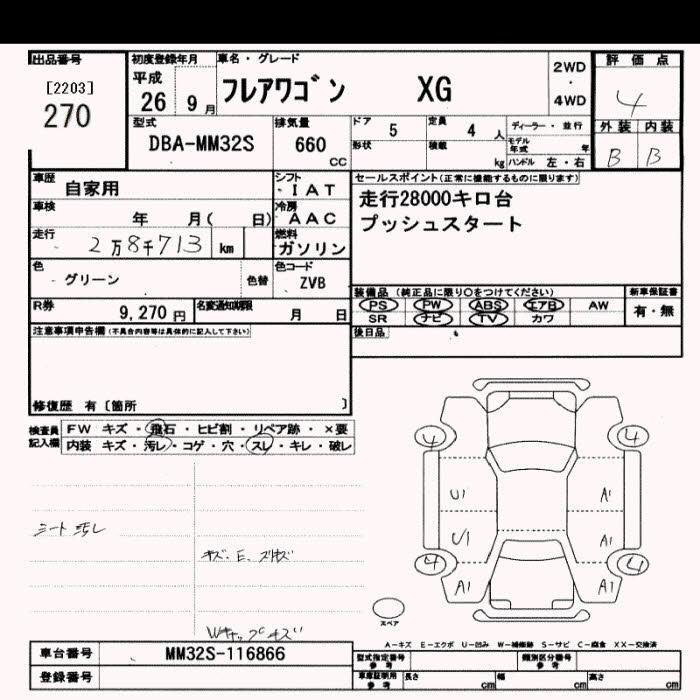 出品番号
[2203]
270
初度登録年月
平成
26 9月
車名・グレード
フレアワゴン XG
2WD
・
4WD
評価点
4
外装 内装
B B
型式
DBA-MM32S
排気量
660
CC
ドア
5
定員
4 人
形状
積載
kg
ディーラー・並行
モデル年式 年
ハンドル 左・右
車歴
自家用
シフト
IAT
車検
年 月( 日)
冷房
AAC
走行
2万8千713 km
燃料
ガソリン
色
グリーン
色替
色コード
ZVB
セールスポイント(正常に機能するものに限ります)
走行28000キロ台
プッシュスタート
装備品(純正品に限り○をつけてください)
PS PW ABS エアB AW
SR ナビ TV カワ
新車保証書
有・無
後日品
R券
9,270 円
名変通知期限
月 日
注意事項申告欄(不具合内容等は具体的に記入して下さい)
修復歴 有〔箇所 〕
検査員記入欄
FW キズ・飛石・ヒビ割・リペア跡・×要
内装 キズ・汚レ・コゲ・穴・スレ・キレ・破レ
シート汚レ
キズ、E、スリキズ
Wキャップキズ
4 4
U1 A1
U1 A1
4 4
A1 A1
スペア
A-キズ E-エクボ U-凹み W-補修跡 S-サビ C-腐食 XX-交換済
車台番号
MM32S-116866
登録番号
型式指定番号
参考
類別区分番号
参考
車庫証明用
参考
長さ cm
幅 cm
高さ cm